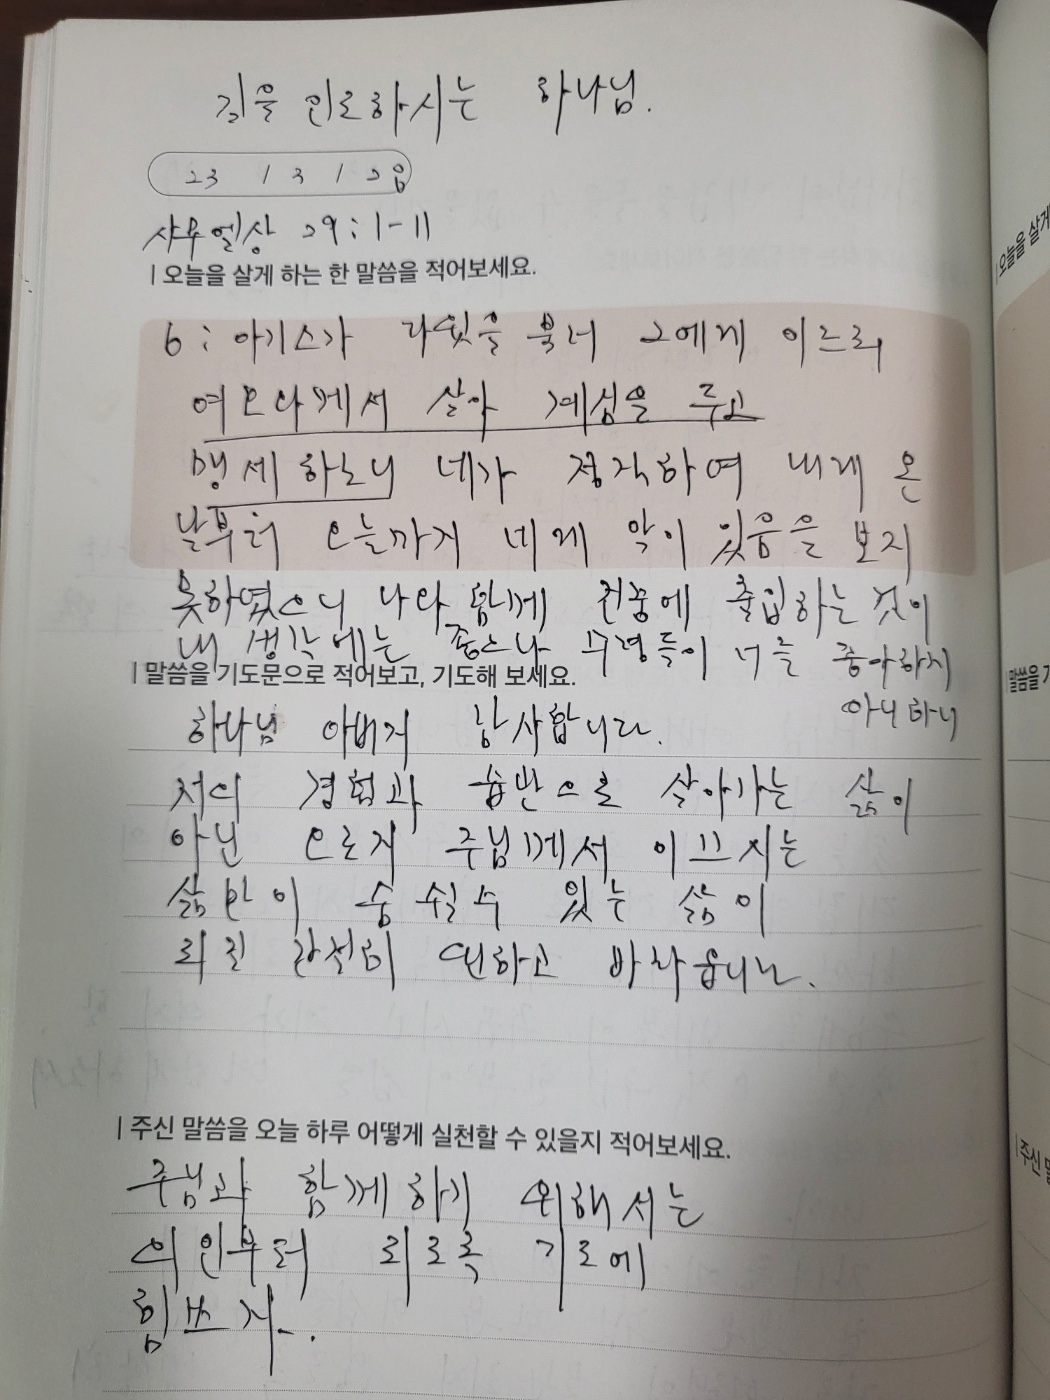 길을 인도하시는 하나님.
23 1 3 1 27일
사무엘상 29:1-11
| 오늘을 살게 하는 한 말씀을 적어보세요.
6: 아기스가 다윗을 불러 그에게 이르되
여호와께서 살아 계심을 두고
맹세하노니 네가 정직하여 내게 온
날부터 오늘까지 네게 악이 있음을 보지
못하였으니 나와 함께 진중에 출입하는 것이
내 생각에는 좋으나 수령들이 너를 좋아하지
아니하니
| 말씀을 기도문으로 적어보고, 기도해 보세요.
하나님 아버지 감사합니다.
저의 경험과 습관으로 살아가는 삶이
아닌 오로지 주님께서 이끄시는
삶만이 숨 쉴수 있는 삶이
되길 간절히 원하고 바라옵니다.
| 주신 말씀을 오늘 하루 어떻게 실천할 수 있을지 적어보세요.
주님과 함께하기 위해서는
의인부터 되도록 기도에
힘쓰자.